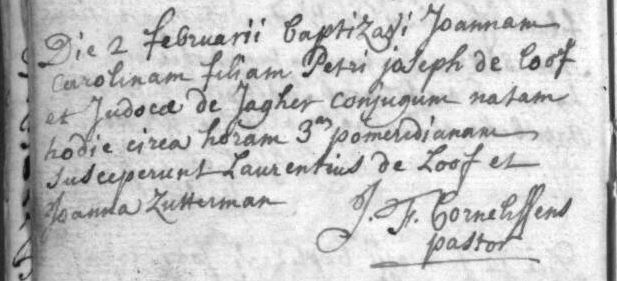 Die 2 februarii baptizavi Joannam
carolinam filiam Petri joseph de loof
et Judocæ de Jagher conjugum natam
hodie circa horam 3am pomeridianam
susceperunt Laurentius de Loof et
Joanna Zutterman
J. F. Cornelissens
pastor